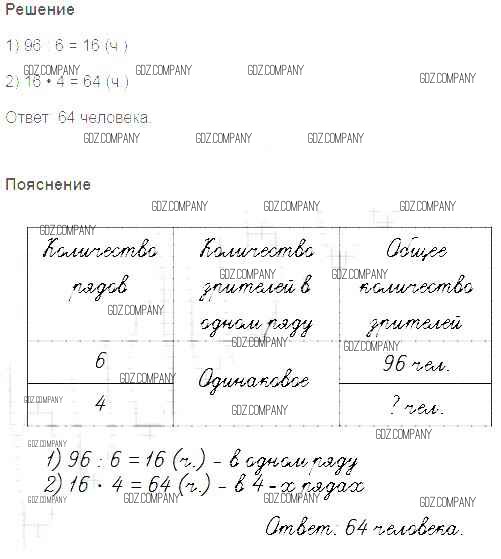 Решение
1) 96 : 6 = 16 (ч.)
GDZ.COMPANY GDZ.COMPANY GDZ.COMPANY
2) 16 • 4 = 64 (ч.)
GDZ.COMPANY
Ответ: 64 человека.
GDZ.COMPANY GDZ.COMPANY GDZ.COMPANY
Пояснение
GDZ.COMPANY GDZ.COMPANY GDZ.COMPANY
GDZ.COMPANY
Количество Количество Общее
GDZ.COMPANY GDZ.COMPANY
рядов зрителей в количество
GDZ.COMPANY
одном ряду зрителей
GDZ.COMPANY GDZ.COMPANY
6 96 чел.
GDZ.COMPANY
Одинаковое
GDZ.COMPANY
4 ? чел.
GDZ.COMPANY
GDZ.COMPANY
GDZ.COMPANY
1) 96 : 6 = 16 (ч.) – в одном ряду
2) 16 · 4 = 64 (ч.) – в 4-х рядах
GDZ.COMPANY GDZ.COMPANY GDZ.COMPANY GDZ.COMPANY
Ответ: 64 человека.